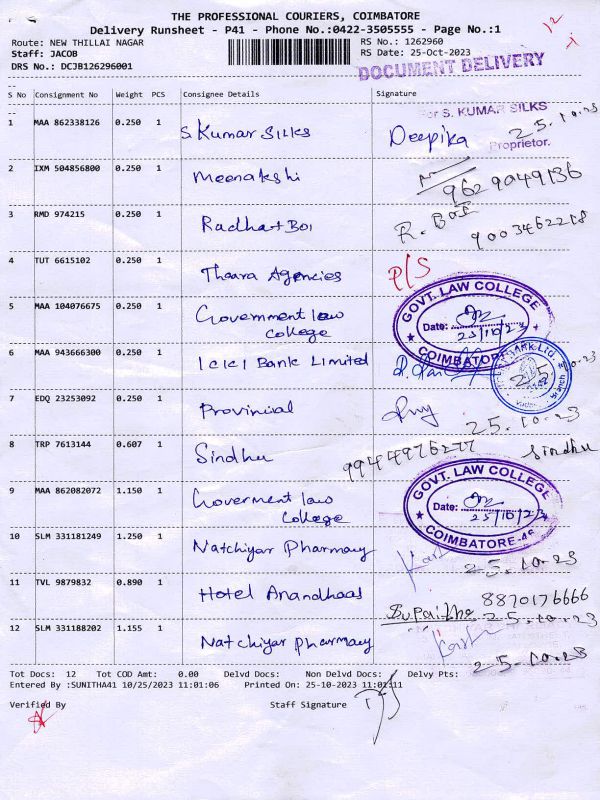 THE PROFESSIONAL COURIERS, COIMBATORE
Delivery Runsheet - P41 - Phone No.:0422-3505555 - Page No.:1
Route: NEW THILLAI NAGAR RS No.: 1262960
Staff: JACOB RS Date: 25-Oct-2023
DRS No.: DCJB126296001
DOCUMENT DELIVERY
S No Consignment No Weight PCS Consignee Details Signature
For S. KUMAR SILKS
1 MAA 862338126 0.250 1 S. Kumar Silks Deepika 25.10.23
Proprietor.
2 IXM 504856800 0.250 1 Meenakshi 9629049136
3 RMD 974215 0.250 1 R. Boi
9003462218
4 TUT 6615102 0.250 1 Theara Agencies P/S
GOVT. LAW COLLEGE
5 MAA 104076675 0.250 1 Government law Date: 25/10/23
college
COIMBATORE
6 MAA 943666300 0.250 1 ICICI Bank Limited 25.10.23
7 EDQ 23253092 0.250 1 Provincial
25.10.23
8 TRP 7613144 0.607 1 Sindhu 9944976277 Sindhu
GOVT. LAW COLLEGE
9 MAA 862082072 1.150 1 Goverment law Date: 25/10/23
college
COIMBATORE-46
10 SLM 331181249 1.250 1 Natchiyar Pharmacy 25.10.23
11 TVL 9879832 0.890 1 Hotel Anandhaas 8870176666
25.10.23
12 SLM 331188202 1.155 1 Natchiyar pharmacy
25.10.23
Tot Docs: 12 Tot COD Amt: 0.00 Delvd Docs: Non Delvd Docs: Delvy Pts:
Entered By :SUNITHA41 10/25/2023 11:01:06 Printed On: 25-10-2023 11:01:11
Verified By Staff Signature